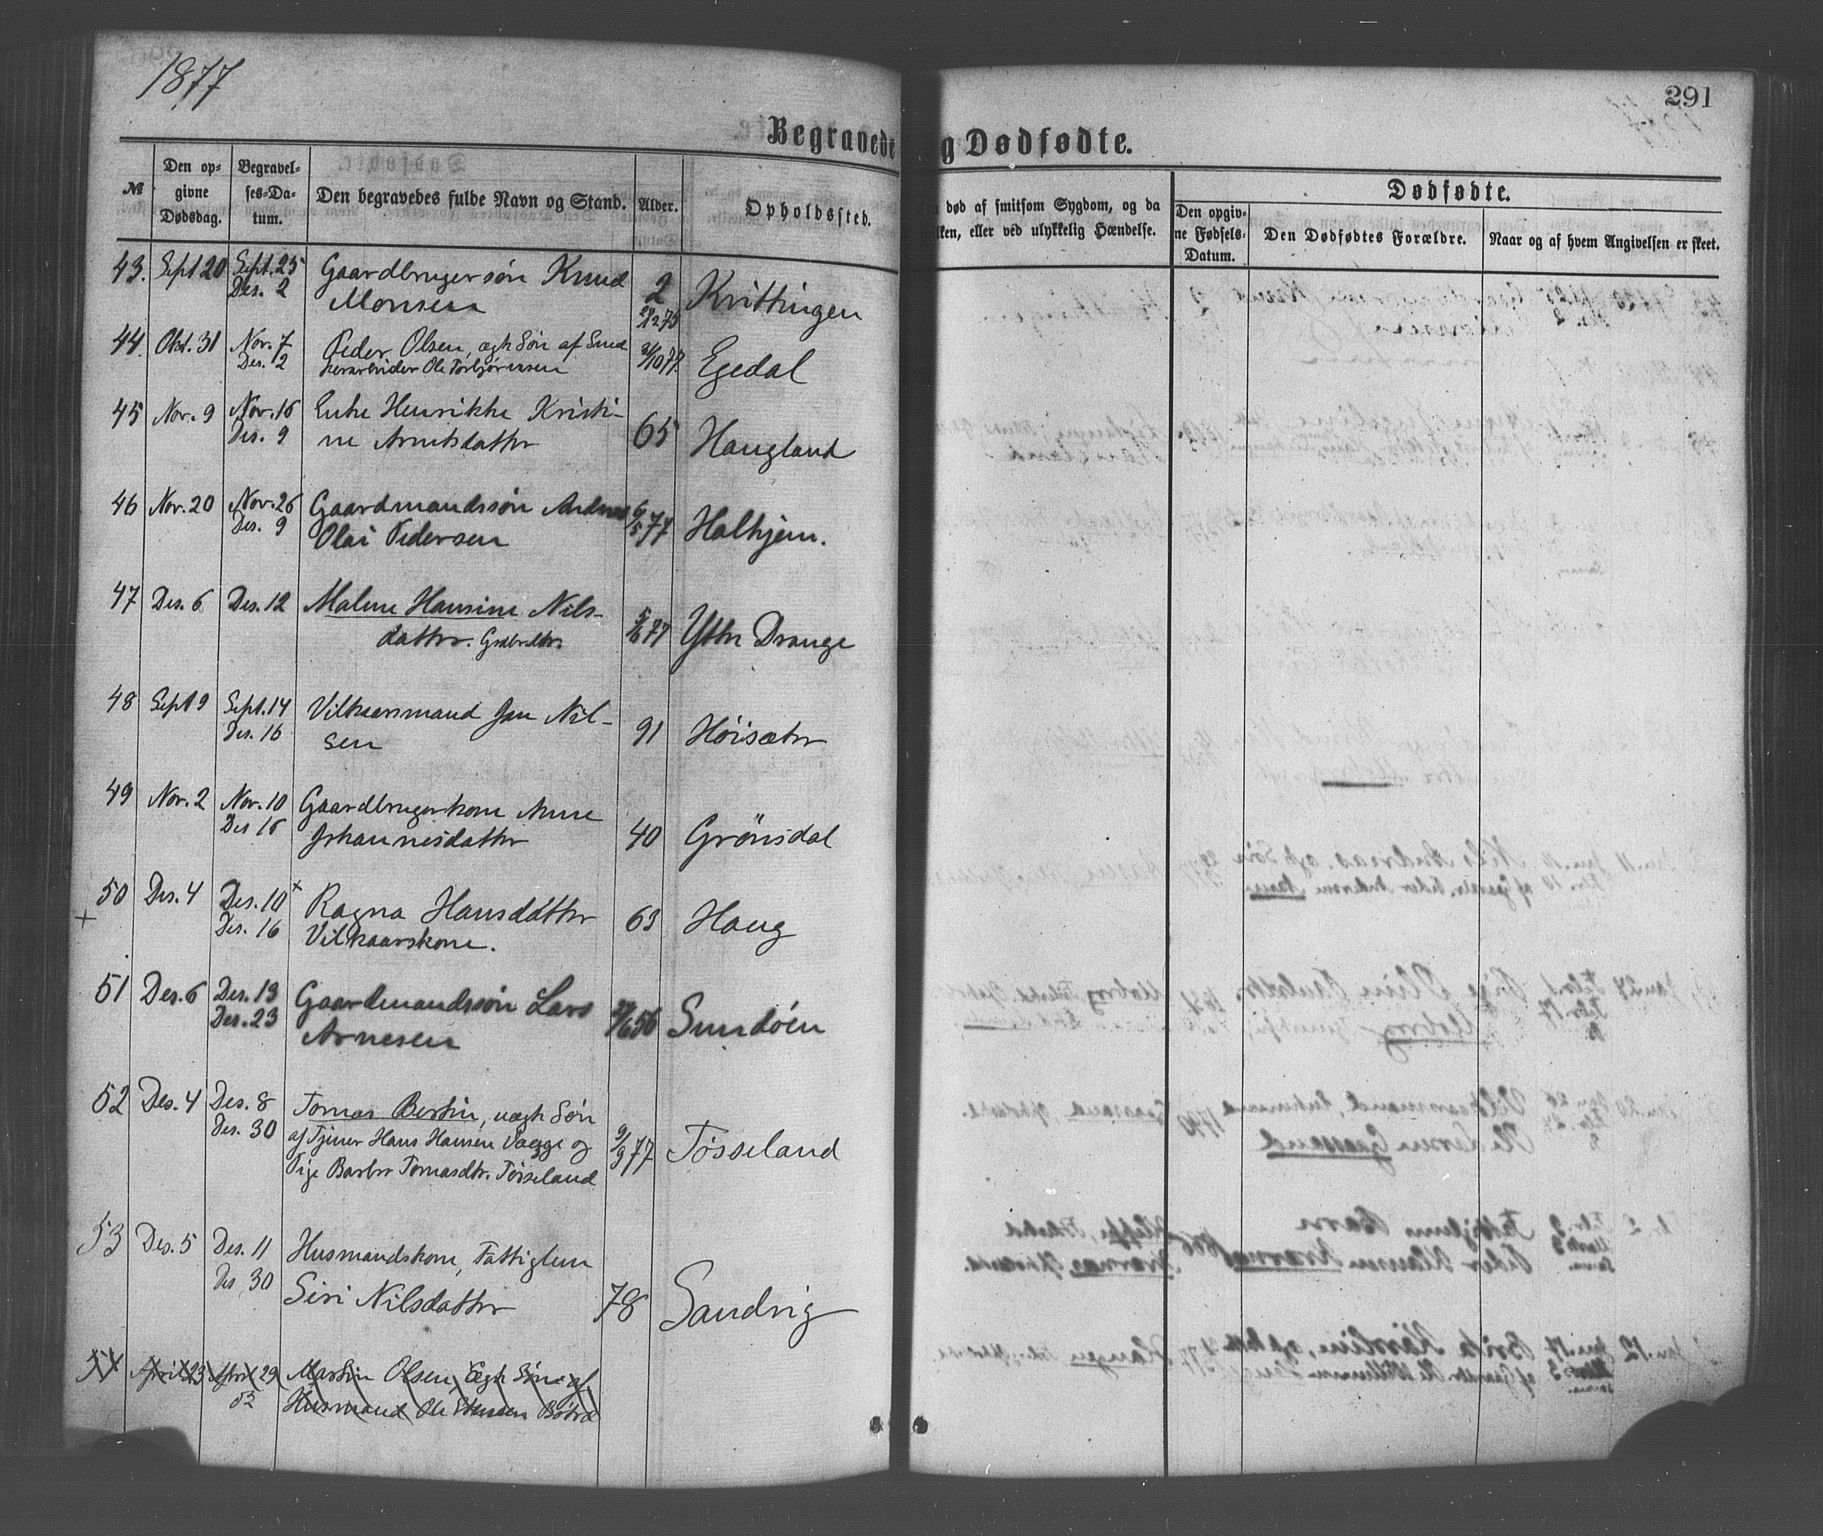 1877
291
Begravede
g Dødfødte.
№
Den op-
givne
Dødsdag.
Begravel-
ses-Da-
tum.
Den begravedes fulde Navn og Stand.
Alder.
Opholdssted.
død af smitsom Sygdom, og da
lken, eller ved ulykkelig Hændelse.
Dødfødte.
Den opgiv-
ne Fødsels-
Datum.
Den Dødfødtes Forældre.
Naar og af hvem Angivelsen er skeet.
43. Sept 20 Sept. 25 Gaardbrugersøn Knud 2
Des. 2 Monsen Kvittingen
44. Okt. 31 Nov. 7 Peder Olsen, ægte Søn af Smed 31/10 77
Des. 2 Ole Torbjørnsen Egedal
45 Nov. 9 Nov. 16 Enke Henrikke Kristi-
Des. 9 ne Arntsdatter 65 Haugland
46 Nov. 20 Nov. 26 Gaardmandssøn Andreas 6/5 77
Des. 9 Olai Pedersen Halhjem.
47 Des. 6 Des. 12 Malene Hansine Nils-
datter. 77 Yttre Drange
48 Sept 9 Sept. 14 Vilkaarsmand Jan Nil-
Des. 16 sen 91 Høisæter
49 Nov. 2 Nov. 10 Gaardbrugerkone Anne
Des 16 Johannesdatter 40 Grønsdal
50 Des. 4 Des. 10 x Ragna Hansdatter 63 Haug
+ Des. 16 Vilkaarskone.
51 Des. 6 Des. 13 Gaardmandssøn Lars 56 Sundøen
Des. 23 Arnesen
52 Des. 4 Des. 8 Tomas Bertin, uægte Søn
Des. 30 af Tjener Hans Hansen Vaage og 9/9 77 Tøsseland
Pige Barbro Tomasdtr. Tøsseland
53 Des. 5 Des. 11 Husmandskone, Fattiglem
Des 30 Siri Nilsdatter 78 Sandvig
54 April 23 Apr. 29 Martin Olsen, Ægte Søn af
Husmand Ole